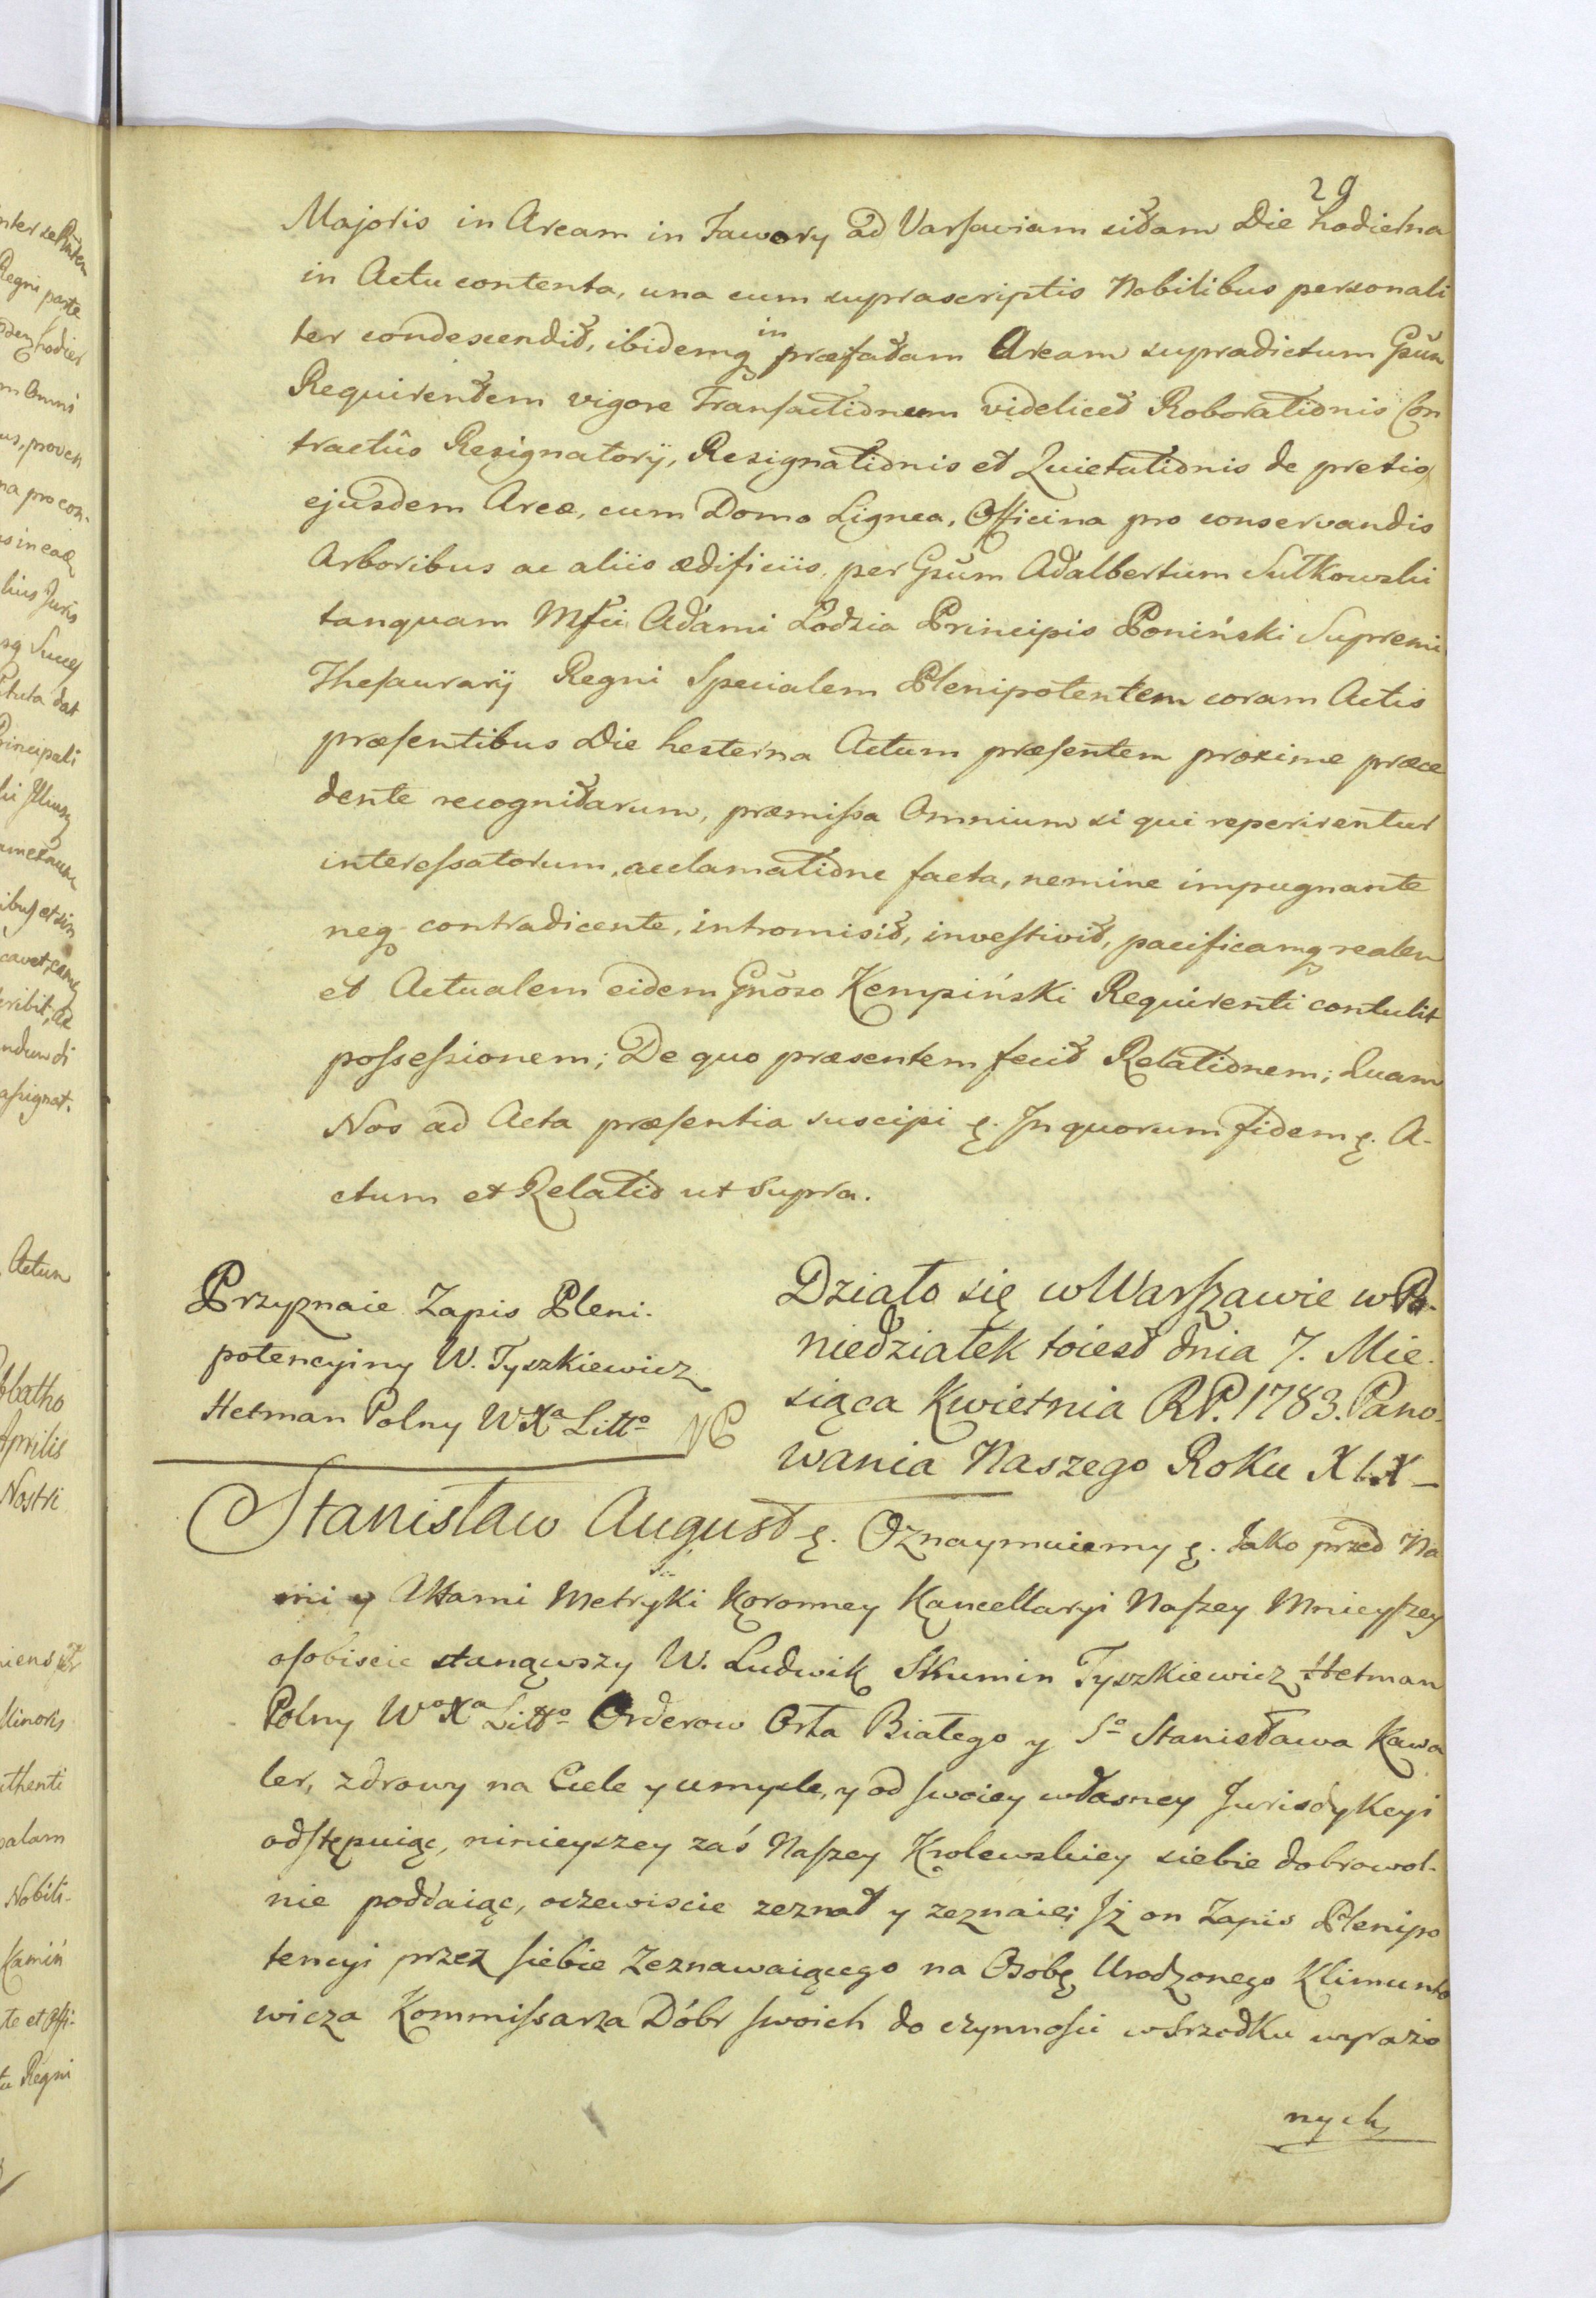 29
Majoris in Aream in Jawory ad Varsaviam sitam Die hodierna
in Actu contenta, una cum suprascriptis Nobilibus personali
ter condescendit, ibidemq in præfatam Aream supradictum Gsum
Requirentem vigore Transactionum videlicet Roborationis Con
tractûs Resignatorÿ, Resignationis et Quietationis de pretio
ejusdem Areæ, cum Domo Lignea, Officina pro conservandis
Arboribus ac aliis ædificiis, per Gsum Adalbertum Sułkowski
tanquam Mfci Adami Łodzia Principis Poniński Supremi
Thesaurarÿ Regni Specialem Plenipotentem coram Actis
præsentibus Die hesterna Actum præsentem proxime præce
dente recognitarum, præmissa Omnium si qui reperirentur
interessatorum, acclamatione facta, nemine impugnante
neq contradicente, intromisit, investivit, pacificamq realem
et Actualem eidem Gnoso Kempiński Requirenti contulit
possessionem; De quo præsentem fecit Relationem; Quam
Nos ad Acta præsentia suscipi ę. In quorum fidem ę. A-
ctum et Relatio ut supra.
Przyznaie Zapis Pleni-
potencyiny W. Tyszkiewicz
Hetman Polny WXa Litto
Działo się w Warszawie w Po-
niedziałek toiest dnia 7. Mie-
siąca Kwietnia RP. 1783. Pano-
wania Naszego Roku XIX
Stanisław August ę. Oznaymuiemy ę. Jako przed Na
mi y Aktami Metryki Koronney Kancellaryi Naszey Mnieyszey
osobiscie stanąwszy W. Ludwik Skumin Tyszkiewicz Hetman
Polny WoXa Litto Orderow Orła Białego y So Stanisława Kawa
ler, zdrowy na Ciele y umysle, y od swoiey własney Jurisdykcyi
odstępuiąc, ninieyszey zaś Naszey Krolewskiey siebie dobrowol-
nie poddaiąc, oczewiscie zeznał y zeznaie; Jż on Zapis Plenipo
tencyi przez siebie Zeznawaiącego na Osobę Urodzonego Klimunto
wicza Kommissarza Dóbr swoich do czynnosci w srzodku wyrażo
nych